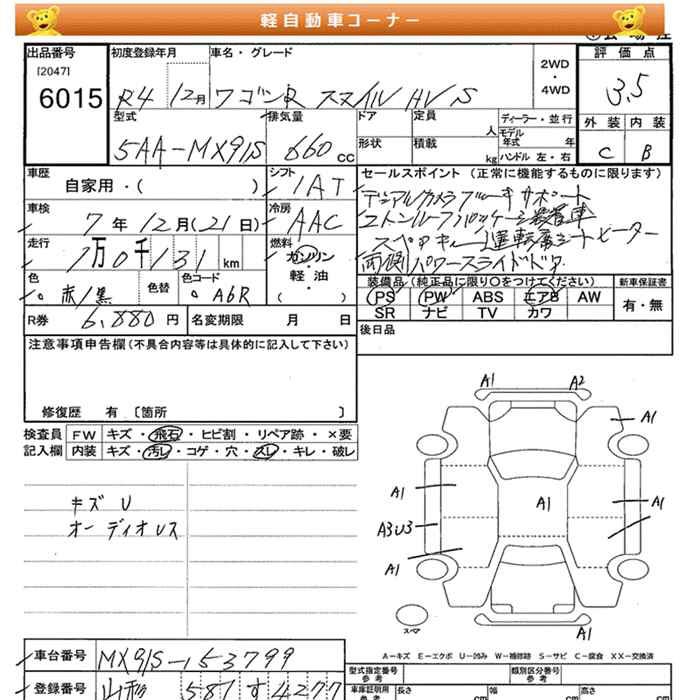 軽自動車コーナー
出品番号 初度登録年月 車名・グレード 評価点
[2047]
6015 R4 12月 ワゴンR スマイル HV S 2WD・4WD 3.5
型式 排気量 ドア 定員 人 ディーラー・並行 外装 内装
5AA-MX91S 660cc 形状 積載 kg モデル年式 年 ハンドル 左・右 C B
車歴 自家用・( ) シフト IAT セールスポイント (正常に機能するものに限ります)
車検 7年12月(21日) 冷房 AAC
走行 1万0千131km 燃料 ガソリン 軽・油 ( )
両側パワースライドドア
色 赤/黒 色替 色コード A6R
装備品 (純正品に限り○をつけてください) 新車保証書
PS PW ABS エアB AW 有・無
SR ナビ TV カワ
R券 6,880円 名変期限 月 日 後日品
注意事項申告欄(不具合内容等は具体的に記入して下さい)
修復歴 有 〔箇所 〕
検査員 FW キズ・飛石・ヒビ割・リペア跡・×要
記入欄 内装 キズ・汚レ・コゲ・穴・スレ・キレ・破レ
キズ U
オーディオレス
A1 A2
A1
A1 A1 A1
A3U3
A1
A1
スペア
A-キズ E-エクボ U-凹み W-補修跡 S-サビ C-腐食 XX-交換済
車台番号 MX91S-153799 型式指定番号 参考 類別区分番号 参考
登録番号 581 す 4277 車庫証明用 参考 長さ cm 幅 cm 高さ cm